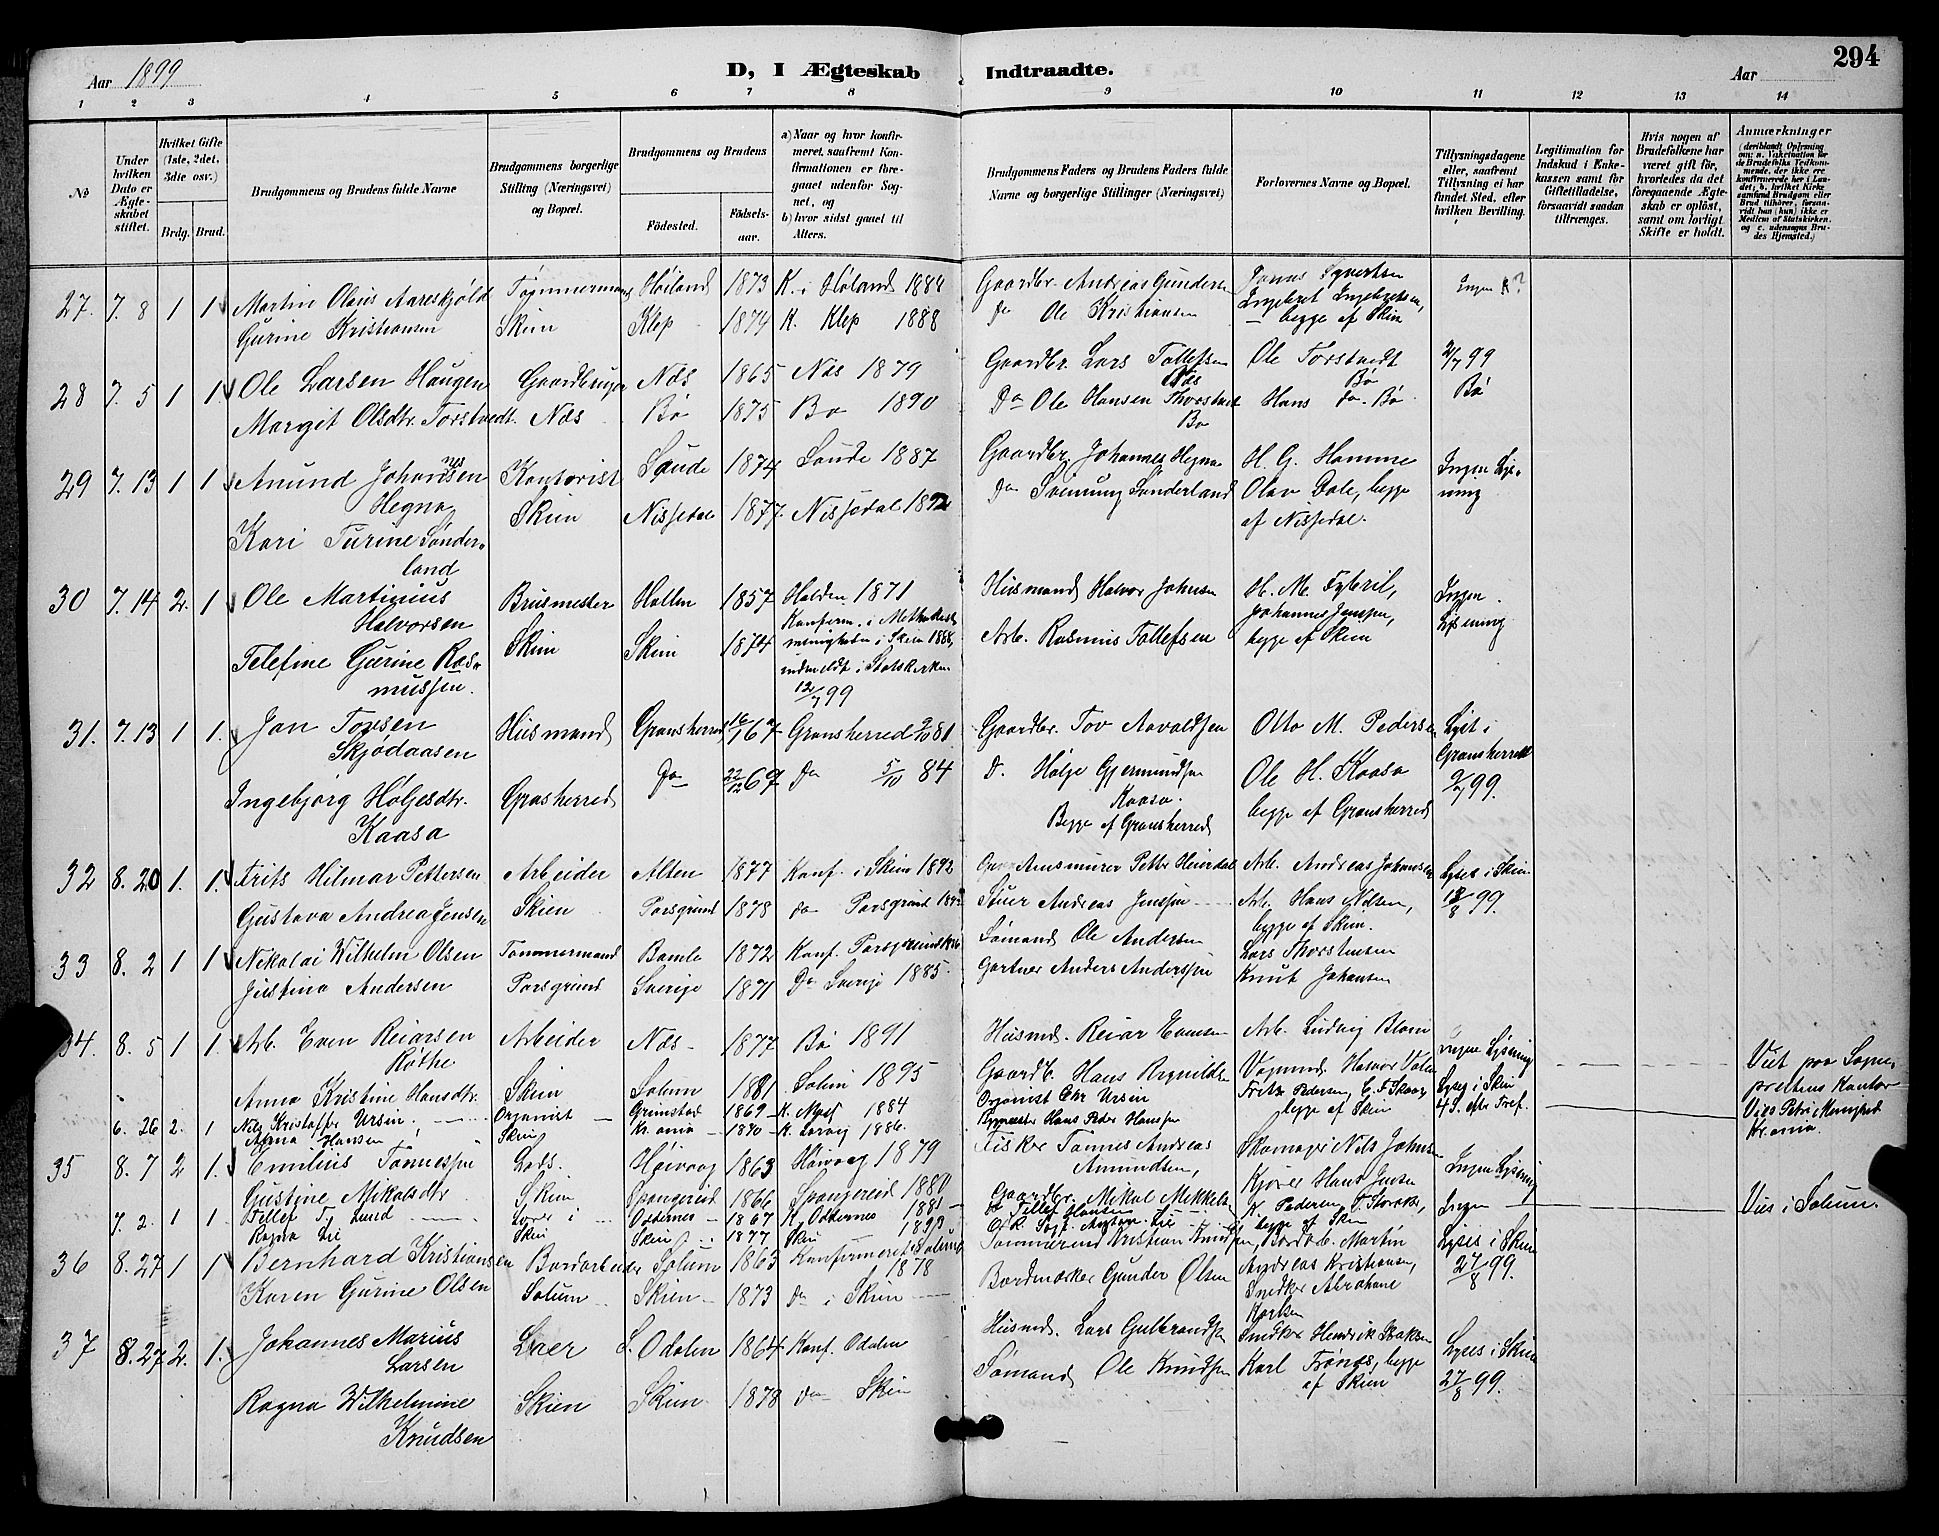 Aar 1899
D, I Ægteskab Indtraadte.
Aar
294
1 2 3 4 5 6 7 8 9 10 11 12 13 14
№
Under hvilken Dato er Ægteskabet stiftet.
Hvilket Gifte (1ste, 2det, 3die osv.)
Brdg. Brud.
Brudgommens og Brudens fulde Navne
Brudgommens borgerlige Stilling (Næringsvei) og Bopæl.
Brudgommens og Brudens
Fødested.
Fødselsaar.
a) Naar og hvor konfirmeret, saafremt Konfirmationen er foregaaet udenfor Sognet, og
b) hvor sidst gaaet til Alters.
Brudgommens Faders og Brudens Faders fulde Navne og borgerlige Stillinger (Næringsvei)
Forlovernes Navne og Bopæl.
Tillysningsdagene eller, saafremt Tillysning ei har fundet Sted, efter hvilken Bevilling.
Legitimation for Indskud i Enkekassen samt for Giftetilladelse, forsaavidt saadan tiltrænges.
Hvis nogen af Brudefolkene har været gift før, hvorledes da det foregaaende Ægteskab er opløst, samt om lovligt Skifte er holdt.
Anmærkninger
27. 7. 8 1 1 Martin Olaus Aareskjold Tømmermand Høiland 1873 K. i Høland 1884 Gaardbr. Andreas Gundersen
Gurine Kristiansen Skien Klep 1874 K. Klep 1888 Do Ole Kristiansen
Ingebret Ingebretsen, begge af Skien
Ingen
28 7. 5 1 1 Ole Larsen Haugen Gaardbruger Næs 1865 Næs 1879 Gaardbr. Lars Tollefsen Næs Ole Torstvedt Bø 2/7 99 Bø
Margit Olsdtr. Torstvedt. Næs Bø 1875 Bø 1890 Do Ole Hansen Thorstvedt Bø Hans do. Bø.
29 7. 13 1 1 Anund Johannesen Hegna Kontorist Saude 1874 Saude 1887 Gaardbr. Johannes Hegna H. G. Homme Ingen Lysning
Kari Turine Sønderland Skien Nissedal 1877. Nissedal 1892 Do Svenung Sønderland Olav Dale, begge af Nissedal.
30 7. 14 2. 1 Ole Martinius Halvorsen Brusmester Hollen 1857 Holden 1871 Husmand Halvor Johnsen
Johannes Jensen, begge af Skien
Ingen Lysning
Telefine Gurine Rasmussen. Skien Skien 1874 Konfirm. i Methodistmenigheden i Skien 1888, indmeldt i Statskirken 12/7 99 Arb. Rasmus Tollefsen
31. 7. 13 1 1. Jon Tovsen Skjødaasen Husmand Gransherred 16/1 67 Gransherred 2/10 81 Gaardbr. Tov Aavaldsen Otto M. Pedersen Lyst i Gransherred 9/7 99.
Ingebjørg Høljesdtr. Kaasa Gransherred Do 22/12 69 Do 5/10 84 D. Hølje Gjermundsen Kaasa. Begge af Gransherred Ole H. Kaasa begge af Gransherred
32 8. 20 1. 1. Frits Hilmar Pettersen Arbeider Alten 1877 Konf. i Skien 1892 Petter Arb. Andreas Johansen Lyses i Skien 13/8 99.
Gustava Andrea Jensen Skien Porsgrund 1878 do Porsgrund Stuer Andreas Jensen Arb. Hans Nilsen, begge af Skien.
33 8. 2 1 1. Nikolai Wilhelm Olsen Tømmermand Bamle 1872 Konf. Porsgrund Sømand Ole Andersen Lars Thorstensen
Justina Andersen Porsgrund Sverige 1871 Do Sverige 1885. Gartner Anders Andersen Knut Johansen
34. 8. 5 1 1. Arb. Even Reiarsen Røthe Arbeider Næs 1877 Bø 1891 Husmd. Reiar Evensen Arb. Ludvig Blom Ingen Lysning Viet paa Sognepræstens Kontor
Anna Kristine Hansdtr. Skien Solum 1881 Solum 1895 Gaardb. Hans Reynildsen Vognmd. Halvor
6. 26 2. 1 Nils Kristoffer Ursin Organist Grimstad 1869 K. 1884 Organist Chr Ursin Fritz Pedersen, begge af Skien Lyses i Skien 4 S. efter Tref. Vies Petri Menighed Kr.ania.
Anna Hansen Skien Kr.ania 1870 K. Larvig 1886. Hans Peder Hansen
35 8. 7 2 1. Emilius Tønnessen Lods. Høivaag 1863 Høivaag 1879 Fisker Tønnes Andreas Amundsen, Skomager Nils Johnsen Ingen Lysning
Gustine Mikalsdtr Skien Spangereid 1866 Spangereid 1880 Gaardbr. Mikal Mikkelsen Kjører Hans Jensen
7. 2. 1 1. Tellef T. Lund Lærer i Oddernes 1867 K. Oddernes 1881 Tellef Hansen K. Pedersen, begge af Skien Ingen Vies i Solum.
Ragna Lie Skien Skien 1877 Skien 1893
36 8. 27 1 1 Bernhard Kristiansen Bordarbeider Solum 1863 Konfirmeret i Solum 1878 Tømmermd Kristian Knudsen, Bordarb. Martin Andreas Kristiansen, Lyses i Skien 27/8 99.
Karen Gurine Olsen Solum Skien 1873 do i Skien Bordmerker Gunder Olsen Snedker Abraham Karlsen
37 8. 27 2. 1. Johannes Marius Larsen S. Odalen 1864 Konf. Odalen Husmd. Lars Gulbrandsen Snedker Hendrik Isaksen Lyses i Skien 27/8 99.
Ragna Wilhelmine Knudsen Skien Skien 1878 do Skien Sømand Ole Knudsen Karl Trønæs, begge af Skien